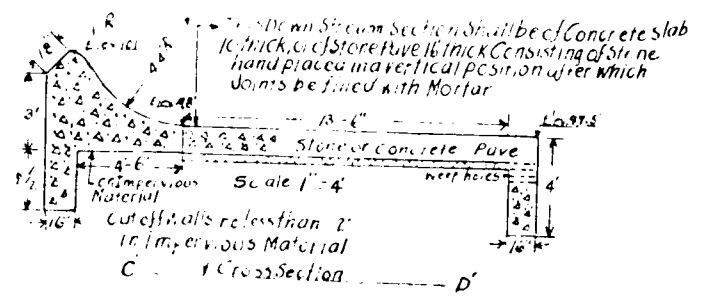 This Down Stream Section Shall be of Concrete slab
16" thick, or of Stone Pave 16" thick Consisting of Stone
hand placed in a vertical position after which
Joints be filled with Mortar
R
El.
3'
4'-6"
13'-6"
El. 97.5
Stone or Concrete Pave
Or Impervious
Material
Scale 1"=4'
Weep holes
4'
16"
16"
Cutoff walls no less than 2'
in Impervious Material
C' Cross Section D'